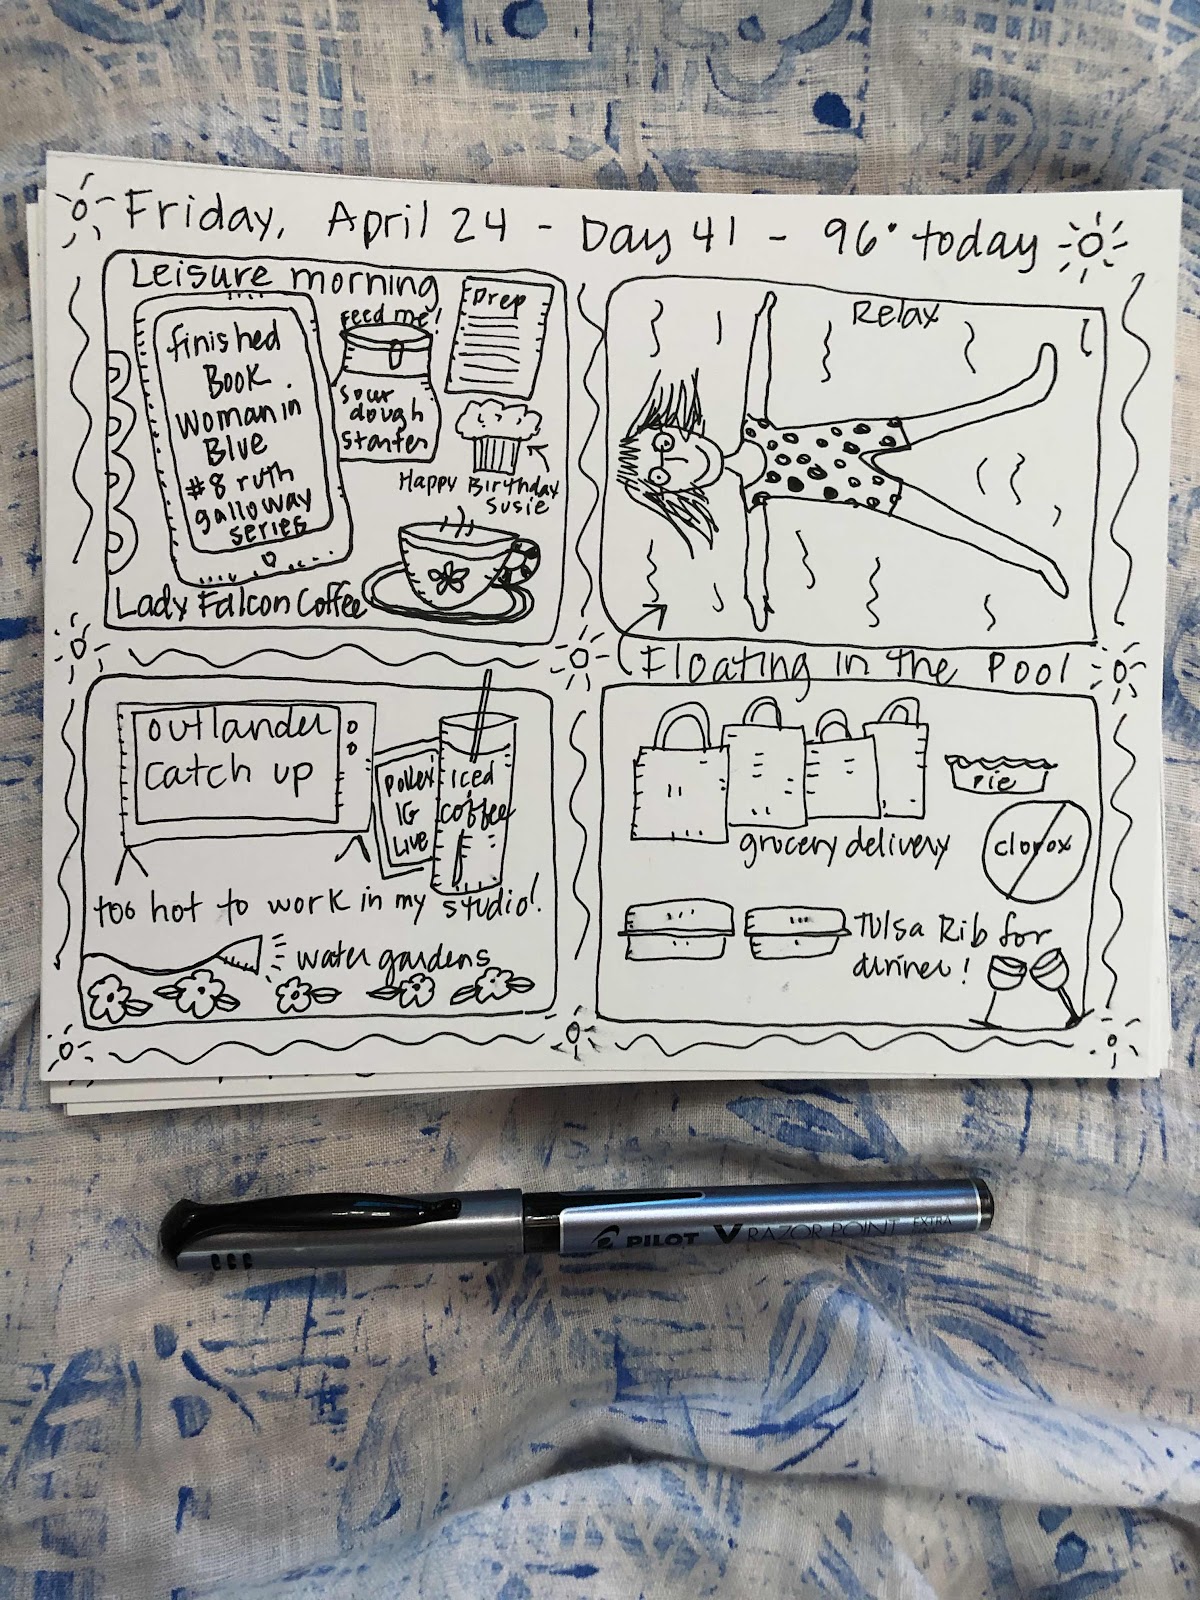 Friday, April 24 - Day 41 - 96° today
Leisure morning
finished
Book
Woman in
Blue
#8 ruth
galloway
series
Feed me!
Sour
dough
starter
Prep
Happy Birthday
Susie
Lady Falcon Coffee
Relax
Floating in the Pool
outlander
catch up
IG
Live
iced
coffee
too hot to work in my studio!
water gardens
grocery delivery
pie
clorox
Tulsa Rib for
dinner!
PILOT V RAZOR POINT EXTRA